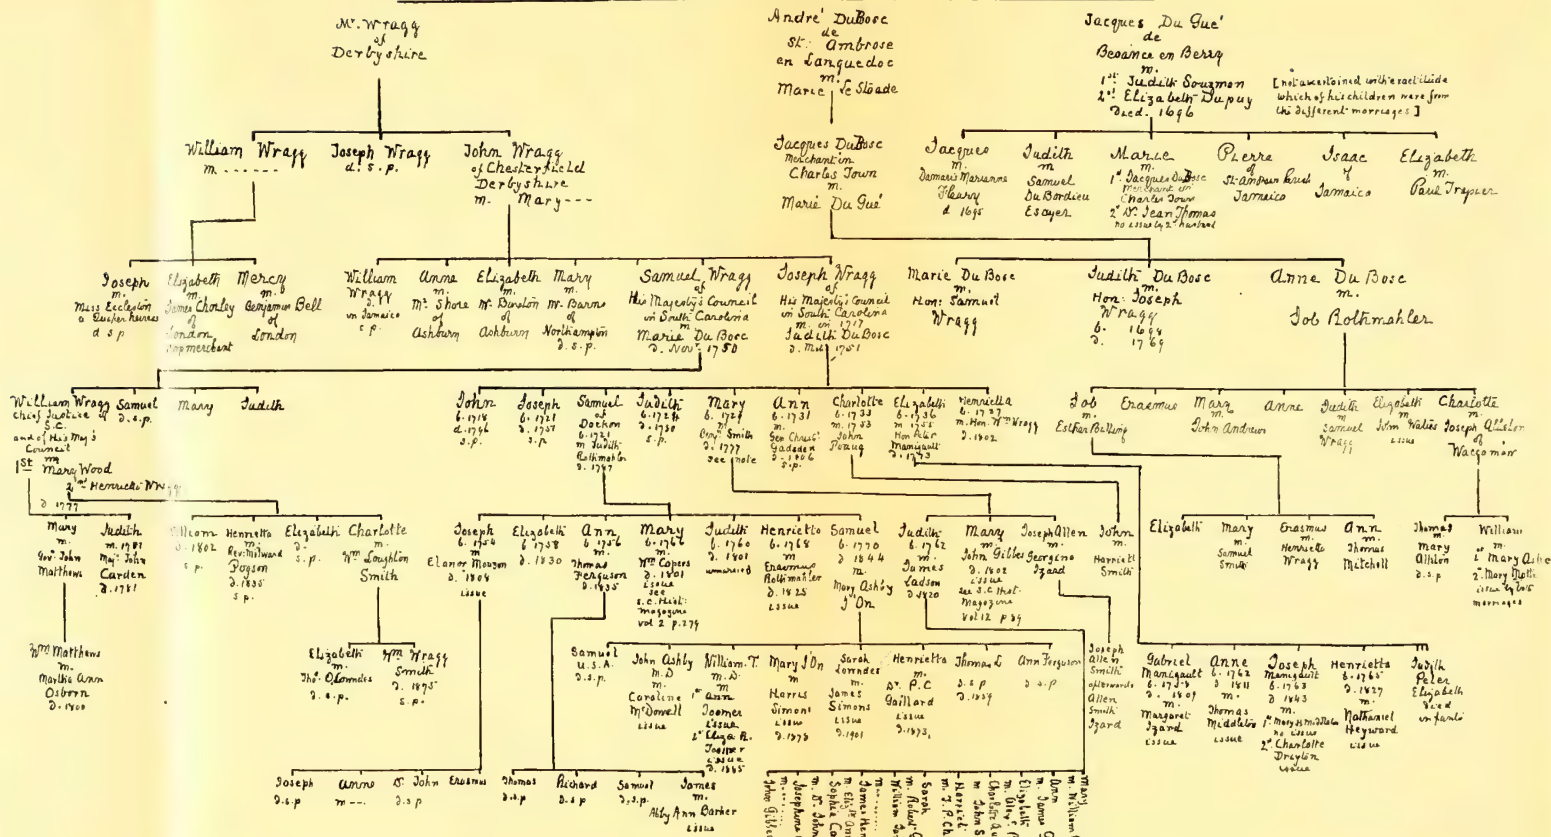 Mr. Wragg
of
Derbyshire
André DuBosc
de
St. Ambrose
en Languedoc
m.
Marie Le Stoade
Jacques Du Gué
de
Besance en Berry
m.
1st Judith Souzmon
2d Elizabeth Dupuy
Died. 1696
[not ascertained with exactitude
which of his children were from
the different marriages]
William Wragg
m. ......
Joseph Wragg
d. s. p.
John Wragg
of Chesterfield
Derbyshire
m. Mary ---
Jacques DuBosc
Merchant in
Charles Town
m.
Marie Du Gué
Jacques
m.
Damaris Marianne
Fleury
d 1695
Judith
m
Samuel
Du Bordieu
Esayer
Marie
m.
1st Jacques DuBosc
Merchant in
Charles Town
2d Dr. Jean Thomas
no issue by 2d husband
Pierre
of
St. Andrew Parish
Jamaica
Isaac
of
Jamaica
Elizabeth
m.
Paul Trapier
Joseph
m.
Miss Eccleston
a Quaker heiress
d s p
Elizabeth
m.
James Chorley
of
London
merchant
Mercy
m.
Benjamin Bell
of
London
William
Wragg
d.
in Jamaica
s p.
Anne
m.
Mr. Shore
of
Ashburn
Elizabeth
m.
Mr. Burston
of
Ashburn
Mary
m.
Mr. Barns
of
Northampton
d. s. p.
Samuel Wragg
of
His Majesty's Council
in South Carolina
m
Marie Du Bosc
d. Nov. 1750
Joseph Wragg
of
His Majesty's Council
in South Carolina
m. in 1717
Judith DuBosc
d. 1751
Marie Du Bosc
m.
Hon: Samuel
Wragg
Judith Du Bosc
m.
Hon: Joseph
Wragg
b. 1698
d. 1769
Anne Du Bosc
m.
Job Rothmahler
William Wragg
Chief Justice of
S.C.
and of His Maj's
Council
m
1st Mary Wood
2nd Henrietta
d 1777
Samuel
d. s. p.
Mary
Judith
John
b. 1718
d. 1796
s. p.
Joseph
b. 1721
d. 1751
s. p
Samuel
of
Dockon
b. 1721
m Judith
Rothmahler
d. 1787
Judith
s. p.
Mary
m
Benj. Smith
d. 1777
see note
Ann
b. 1731
m.
Gen Christ.
Gadsden
s. p.
Charlotte
b. 1733
m. 1753
John
Poaug
Elizabeth
b. 1736
m 1755
Hon Peter
Manigault
d. 1773
Henrietta
b. 1737
m. Hon. Wm Wragg
d. 1802
Job
m.
Esther
Erasmus
Mary
m
John Andrew
Anne
Judith
m
Samuel
Wragg
Elizabeth
m
issue
Charlotte
m.
Joseph Allston
of
Waccamaw
Mary
m.
Gov. John
Matthews
Judith
m. 1781
Maj. John
Carden
d. 1781
William
d. 1802
s. p.
Henrietta
m.
Rev: Milward
Pogson
d. 1835
s. p.
Elizabeth
d.
s. p.
Charlotte
m.
Wm. Loughton
Smith
Joseph
b. 1754
m
Elanor Mouzon
d. 1804
issue
Elizabeth
b 1758
d. 1830
Ann
b. 1756
m.
Thomas
Ferguson
d. 1835
Mary
m
Wm Capers
d. 1801
issue
see
S.C. Hist.
Magazine
vol 2 p. 279
Judith
b. 1760
d. 1801
unmarried
Henrietta
b. 1768
m
Erasmus
Rothmahler
d. 1825
issue
Samuel
b. 1770
d 1844
m
Mary Ashby
I'On
Judith
b. 1762
m.
James
Ladson
d 1820
Mary
m.
John Gibbes
d. 1802
issue
see S.C. Hist.
Magazine
Vol 12 p 89
Joseph Allen
m.
Georgina
Izard
John
m.
Harriett
Smith
Elizabeth
Mary
m.
Samuel
Smith
Erasmus
m.
Henrietta
Wragg
Ann
m.
Thomas
Mitchell
Thomas
m.
Mary
Allston
d.s.p
William
m.
1st Mary Ashe
2d Mary Motte
issue by both
marriages
Wm Matthews
m.
Martha Ann
Osborn
d. 1800
Elizabeth
m.
Tho: O. Lowndes
d. s. p.
Wm Wragg
Smith
d. 1875
s. p.
Samuel
U.S.A.
d.s.p.
John Ashby
M.D
m.
Caroline
McDowell
issue
William. T.
M. D.
m.
1st Ann
Toomer
issue
2d Eliza R.
Toomer
issue
d. 1885
Mary I'On
m
Harris
Simons
issue
d. 1878
Sarah
Lowndes
m.
James
Simons
issue
d. 1901
Henrietta
m.
Dr. P.C
Gaillard
issue
d. 1873.
Thomas L
d.s.p
d. 1859
Ann Ferguson
d. s.p
Joseph
Allen
Smith
afterwards
Allen
Smith
Izard
Gabriel
Manigault
b. 1758
d. 1809
m.
Margaret
Izard
issue
Anne
b. 1762
d 1811
m.
Thomas
Middleton
issue
Joseph
Manigault
b. 1763
d 1843
m.
no issue
2d Charlotte
Drayton
issue
Henrietta
b. 1765
d. 1827
m.
Nathaniel
Heyward
issue
Judith
Peter
Elizabeth
died
in infants
Joseph
d.s.p
Anne
m ---.
Dr. John
d.s.p
Erasmus
Thomas
d.s.p
Richard
d s p
Samuel
d.s.p.
James
m.
Abby Ann Barker
issue
John Gibbes
m.
Josephine
m. Dr. John
Sophia
m. Eliz.
James
m.
William
m. Robert
Sarah
m. T. P. Ch
Harriet
m John S
Charlotte
Elizabeth
m. James
Ann
m. William
Mary